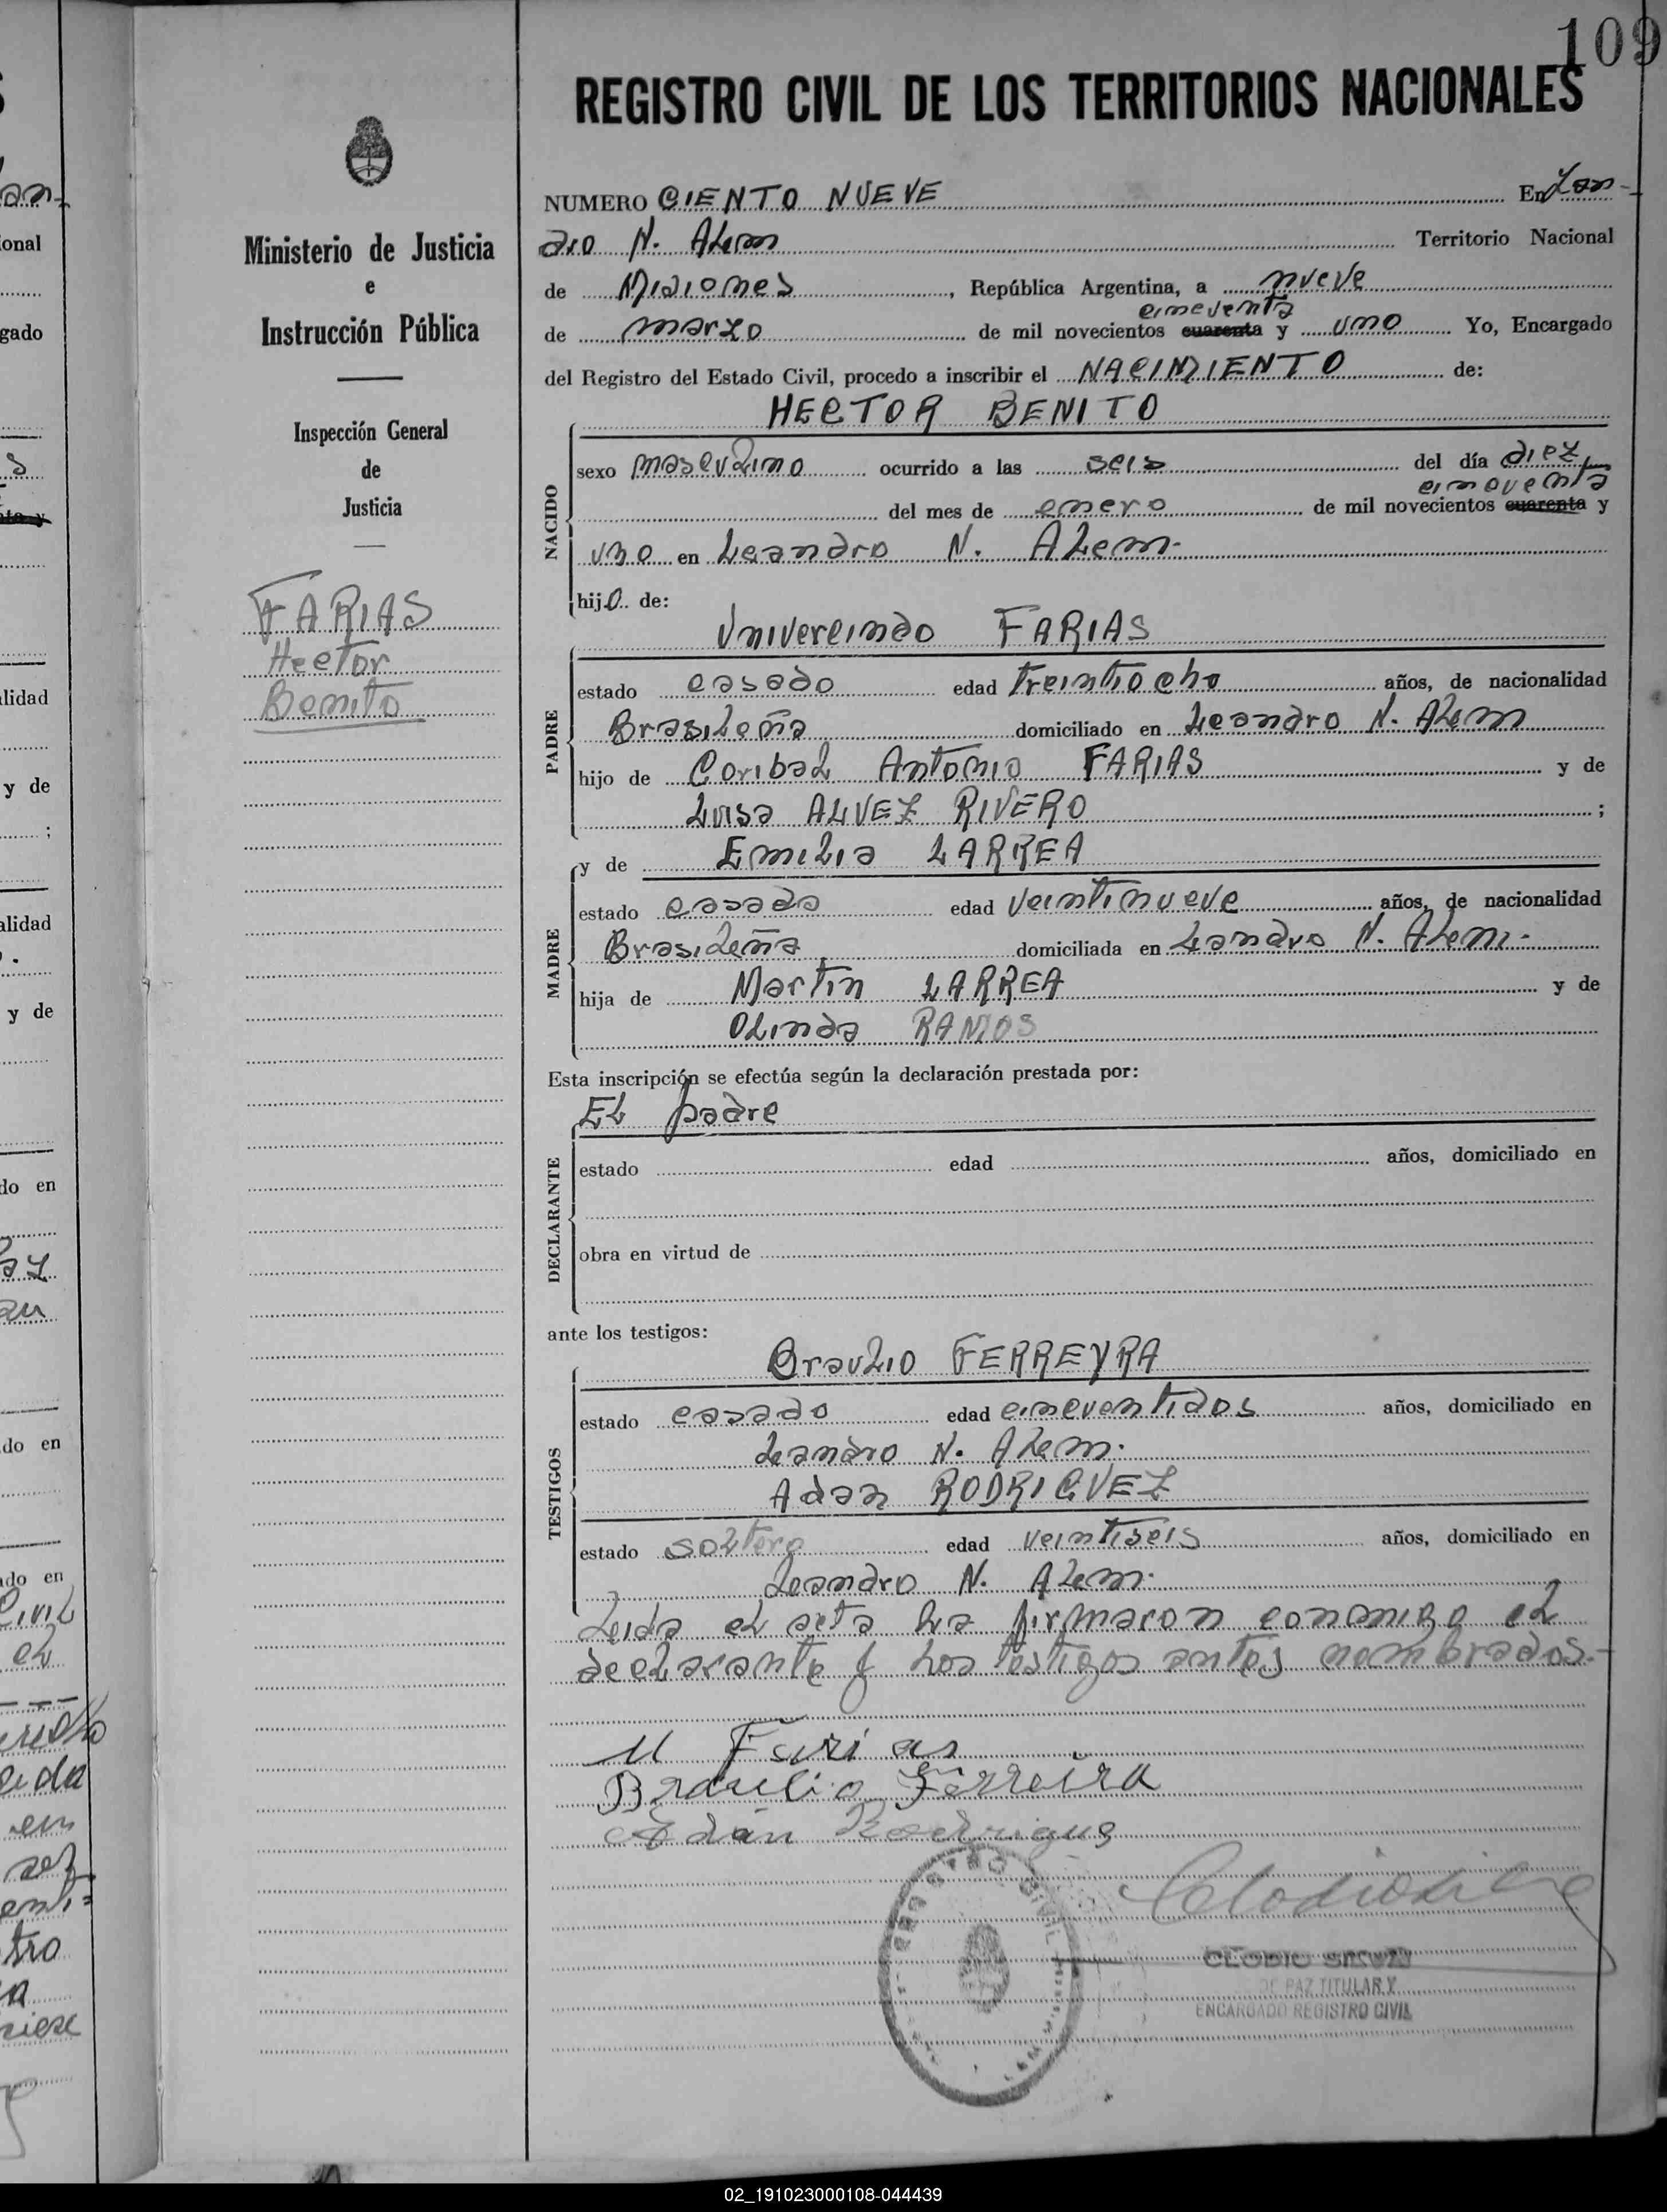 109
REGISTRO CIVIL DE LOS TERRITORIOS NACIONALES
Ministerio de Justicia
e
Instrucción Pública
Inspección General
de
Justicia
FARIAS
Hector
Benito
NUMERO CIENTO NUEVE En Lean-
dro N. Alem Territorio Nacional
de Misiones, República Argentina, a nueve
cincuenta
de marzo de mil novecientos cuarenta y uno Yo, Encargado
del Registro del Estado Civil, procedo a inscribir el NACIMIENTO de:
HECTOR BENITO
NACIDO
sexo masculino ocurrido a las seis del día diez
cincuenta
del mes de enero de mil novecientos cuarenta y
uno en Leandro N. Alem.
hijo de:
Univercindo FARIAS
PADRE
estado casado edad treintiocho años, de nacionalidad
Brasileña domiciliado en Leandro N. Alem
hijo de Coribal Antonio FARIAS y de
Luisa ALVEZ RIVERO ;
y de Emilia LARREA
MADRE
estado casada edad veintinueve años, de nacionalidad
Brasileña domiciliada en Leandro N. Alem.
hija de Martin LARREA y de
Olinda RAMOS
Esta inscripción se efectúa según la declaración prestada por:
El padre
DECLARANTE
estado edad años, domiciliado en
obra en virtud de
ante los testigos:
Braulio FERREYRA
TESTIGOS
estado casado edad cincuentidos años, domiciliado en
Leandro N. Alem.
Adan RODRIGUEZ
estado soltero edad veintiseis años, domiciliado en
Leandro N. Alem.
Leida el acta la firmaron conmigo el
declarante y los testigos antes nombrados.-
U Farias
Braulio Ferreira
Adán Rodrigues
CLODIO
DE PAZ TITULAR Y
ENCARGADO REGISTRO CIVIL
02_191023000108-044439